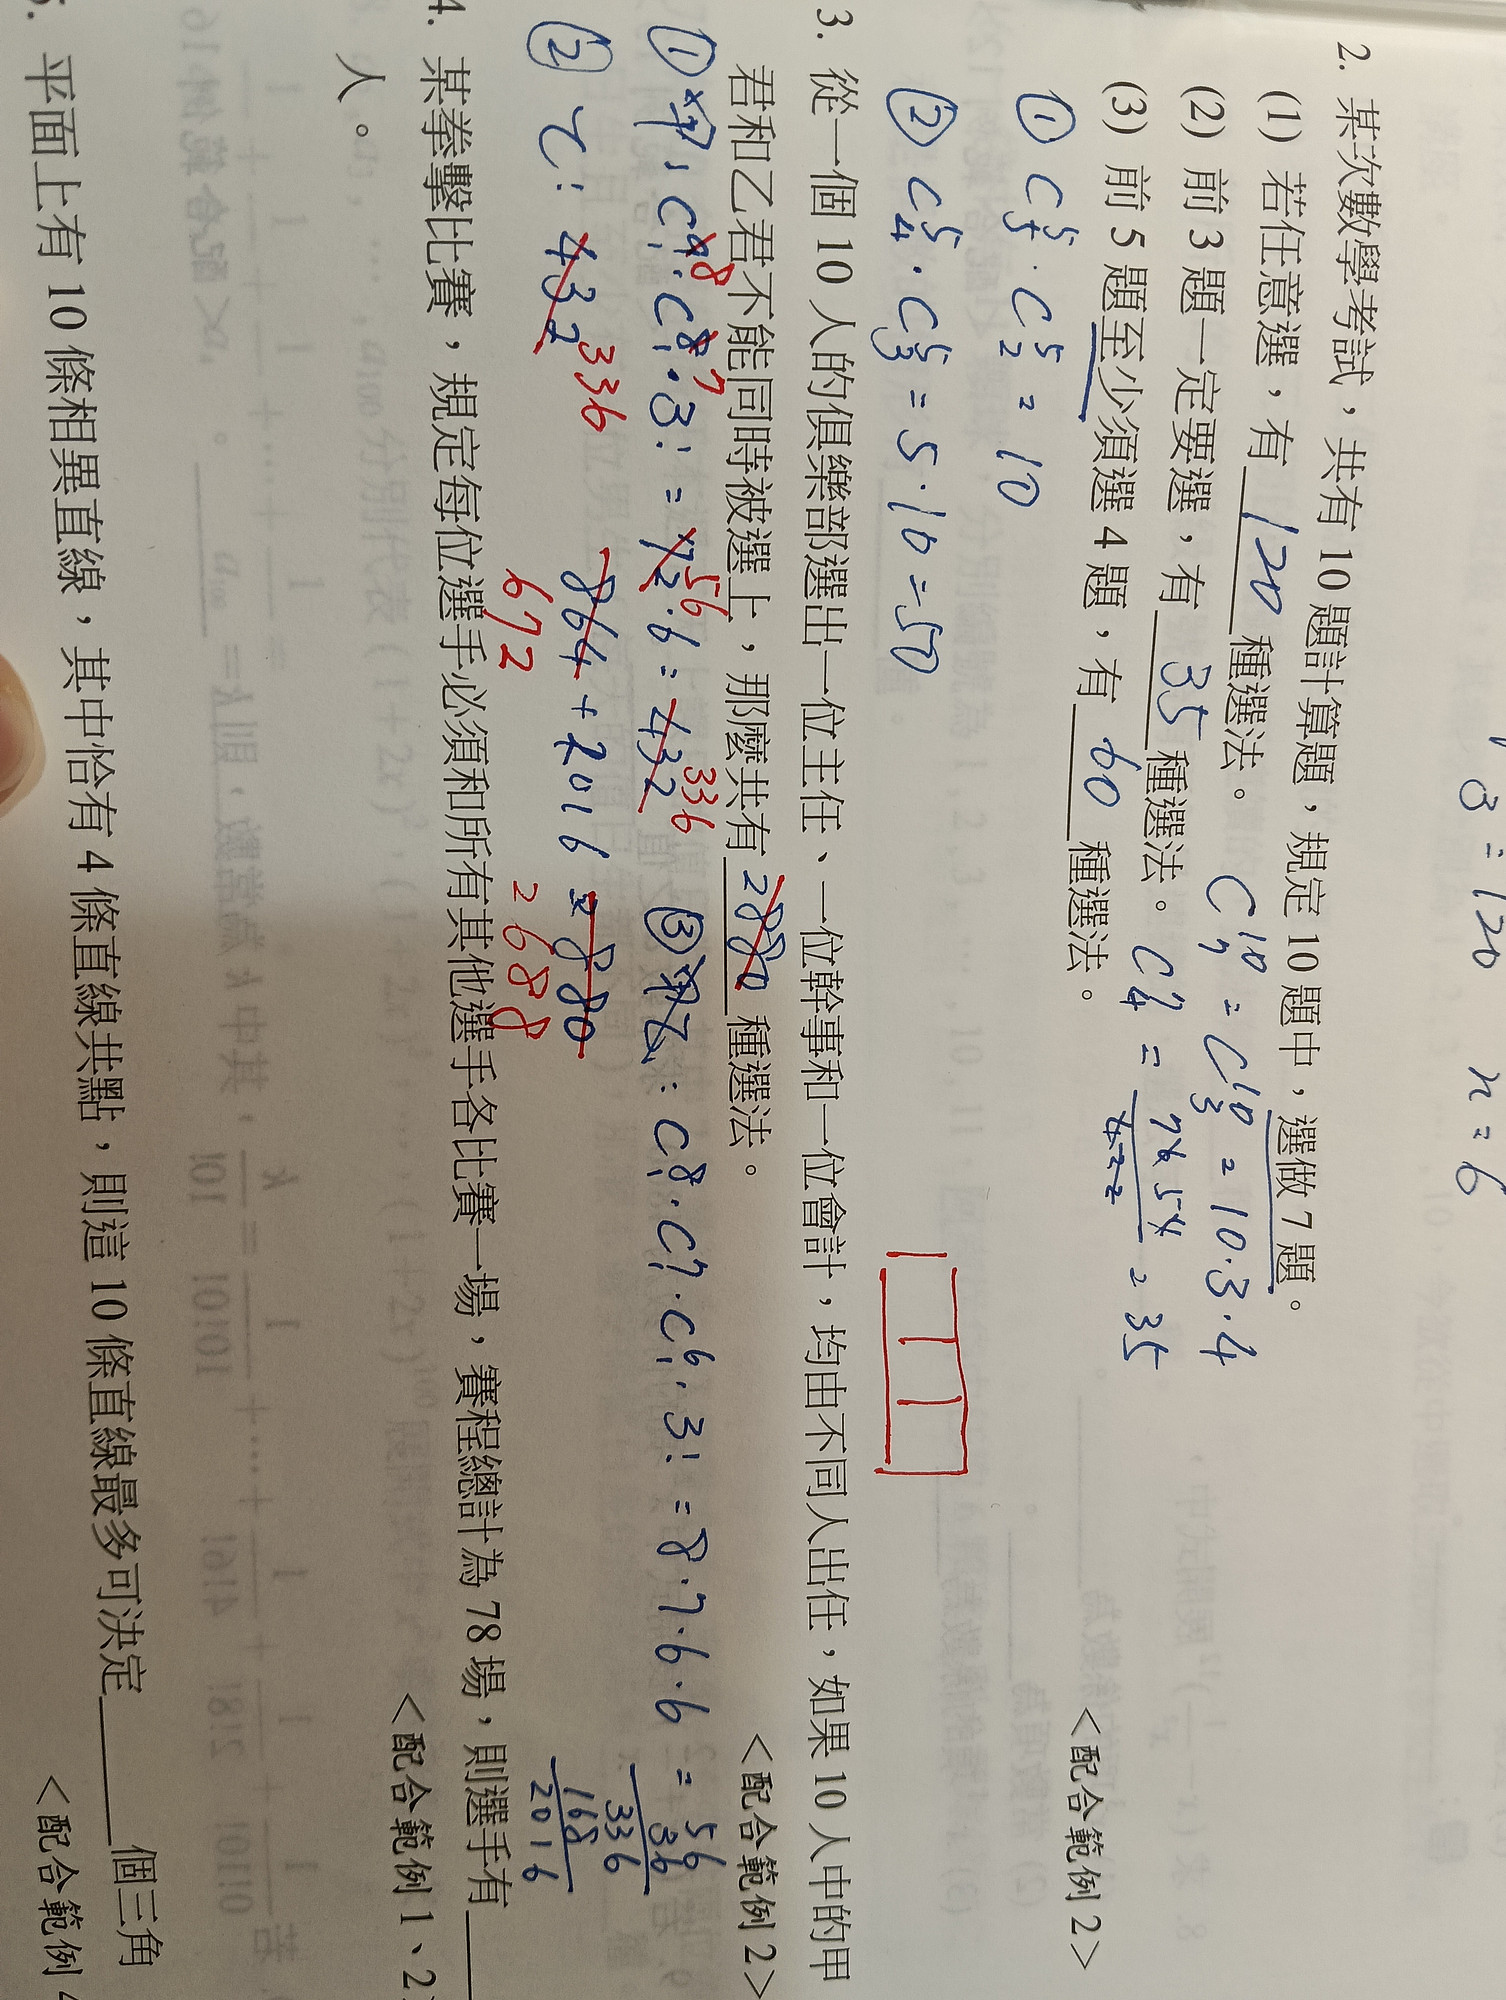 3 = 120 n = 6
2. 某次數學考試，共有 10 題計算題，規定 10 題中，選做 7 題。
(1) 若任意選，有 120 種選法。 C¹⁰₇ = C¹⁰₃ = 10·3·4
(2) 前 3 題一定要選，有 35 種選法。 C⁷₄ = = 35
(3) 前 5 題至少須選 4 題，有 60 種選法。
① C⁵₅ · C⁵₂ = 10
② C⁵₄ · C⁵₃ = 5·10 = 50
<配合範例 2>
3. 從一個 10 人的俱樂部選出一位主任、一位幹事和一位會計，均由不同人出任，如果 10 人中的甲
君和乙君不能同時被選上，那麼共有 2880 種選法。
<配合範例 2>
① 甲: C⁹₁ 8 · C⁸₁ 7 · 3! = 72 56 · 6 = 432 336 ③ : C⁸₁ · C⁷₁ · C⁶₁ · 3! = 8·7·6·6 = 56
36
336
168
2016
② 乙: 432 336 864 + 2016 = 2880
672 2688
4. 某拳擊比賽，規定每位選手必須和所有其他選手各比賽一場，賽程總計為 78 場，則選手有
人。
<配合範例 1、2>
5. 平面上有 10 條相異直線，其中恰有 4 條直線共點，則這 10 條直線最多可決定 個三角
<配合範例